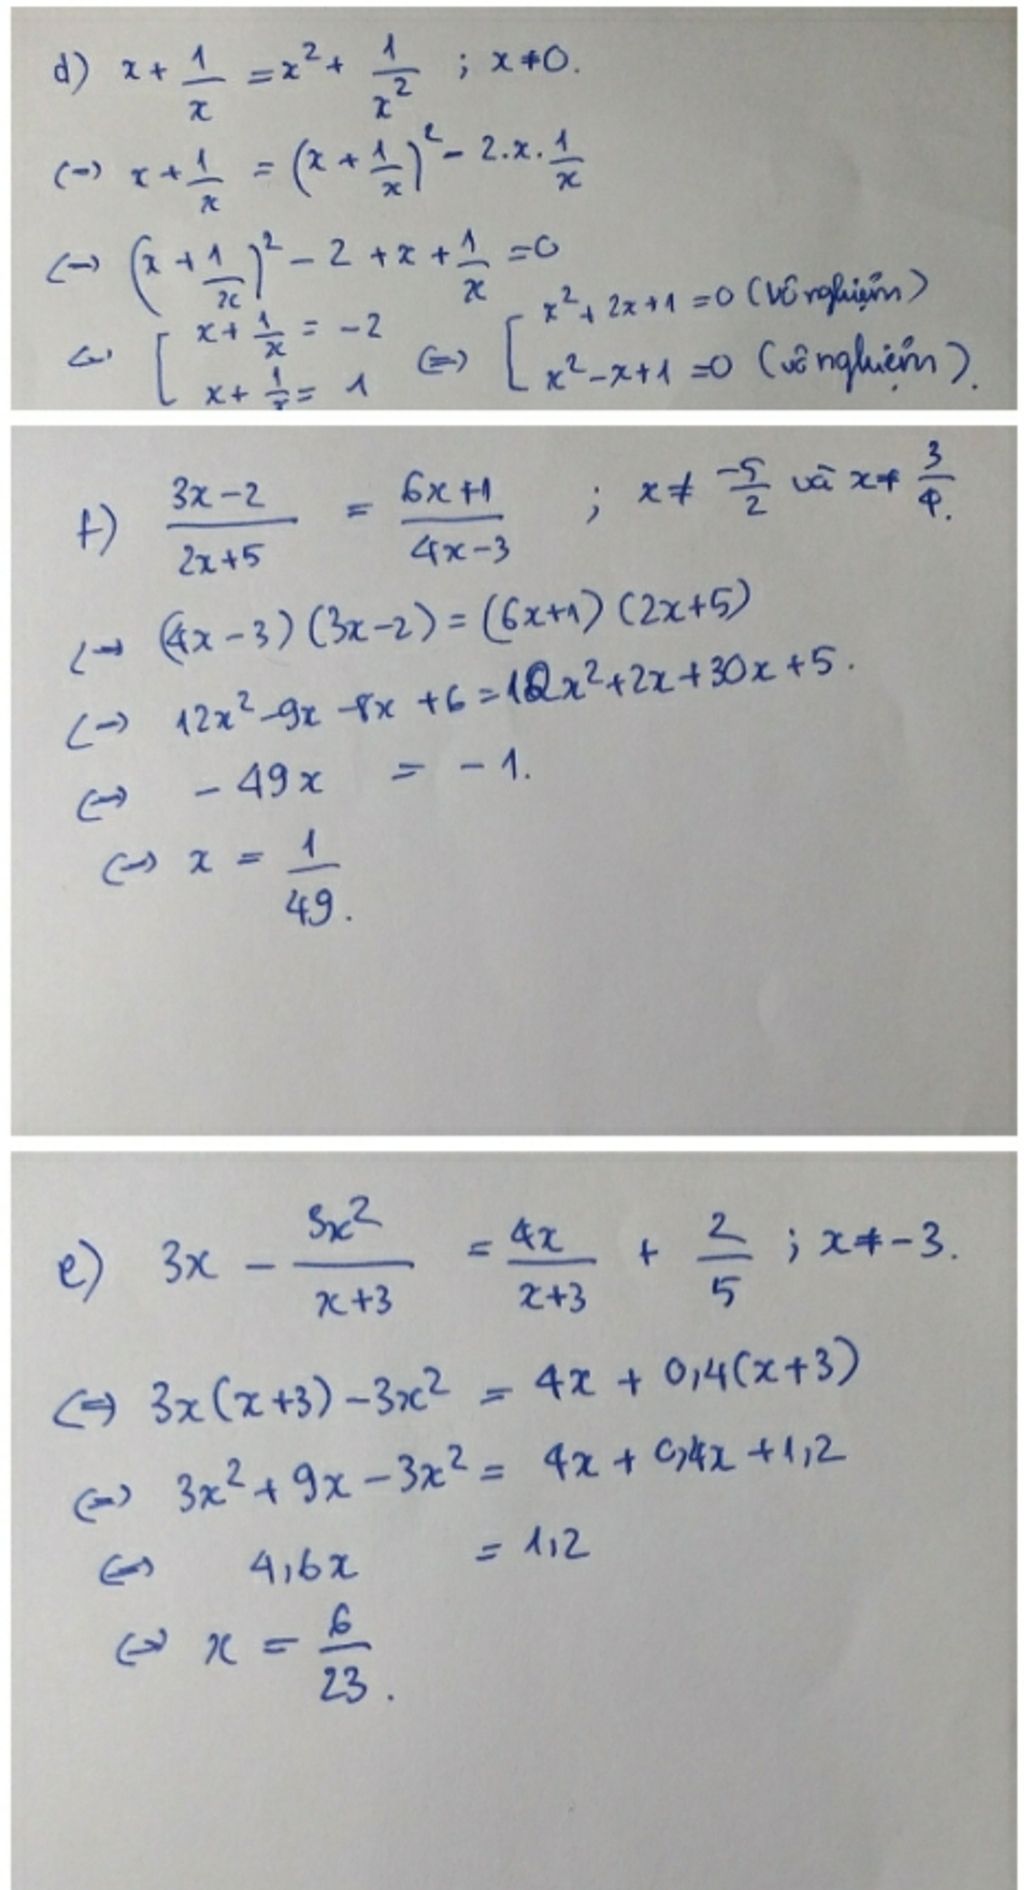 d) x + 1/x = x² + 1/x² ; x ≠ 0.
(=) x + 1/x = (x + 1/x)² - 2.x.1/x
(=) (x + 1/x)² - 2 + x + 1/x = 0
(=) [ x + 1/x = -2 (=) [ x² + 2x + 1 = 0 (vô nghiệm)
x + 1/x = 1 x² - x + 1 = 0 (vô nghiệm).
f) (3x-2)/(2x+5) = (6x+1)/(4x-3) ; x ≠ -5/2 và x ≠ 3/4.
(=) (4x-3)(3x-2) = (6x+1)(2x+5)
(=) 12x² - 9x - 8x + 6 = 12x² + 2x + 30x + 5.
(=) -49x = -1.
(=) x = 1/49.
e) 3x - 3x²/(x+3) = 4x/(x+3) + 2/5 ; x ≠ -3.
(=) 3x(x+3) - 3x² = 4x + 0,4(x+3)
(=) 3x² + 9x - 3x² = 4x + 0,4x + 1,2
(=) 4,6x = 1,2
(=) x = 6/23.